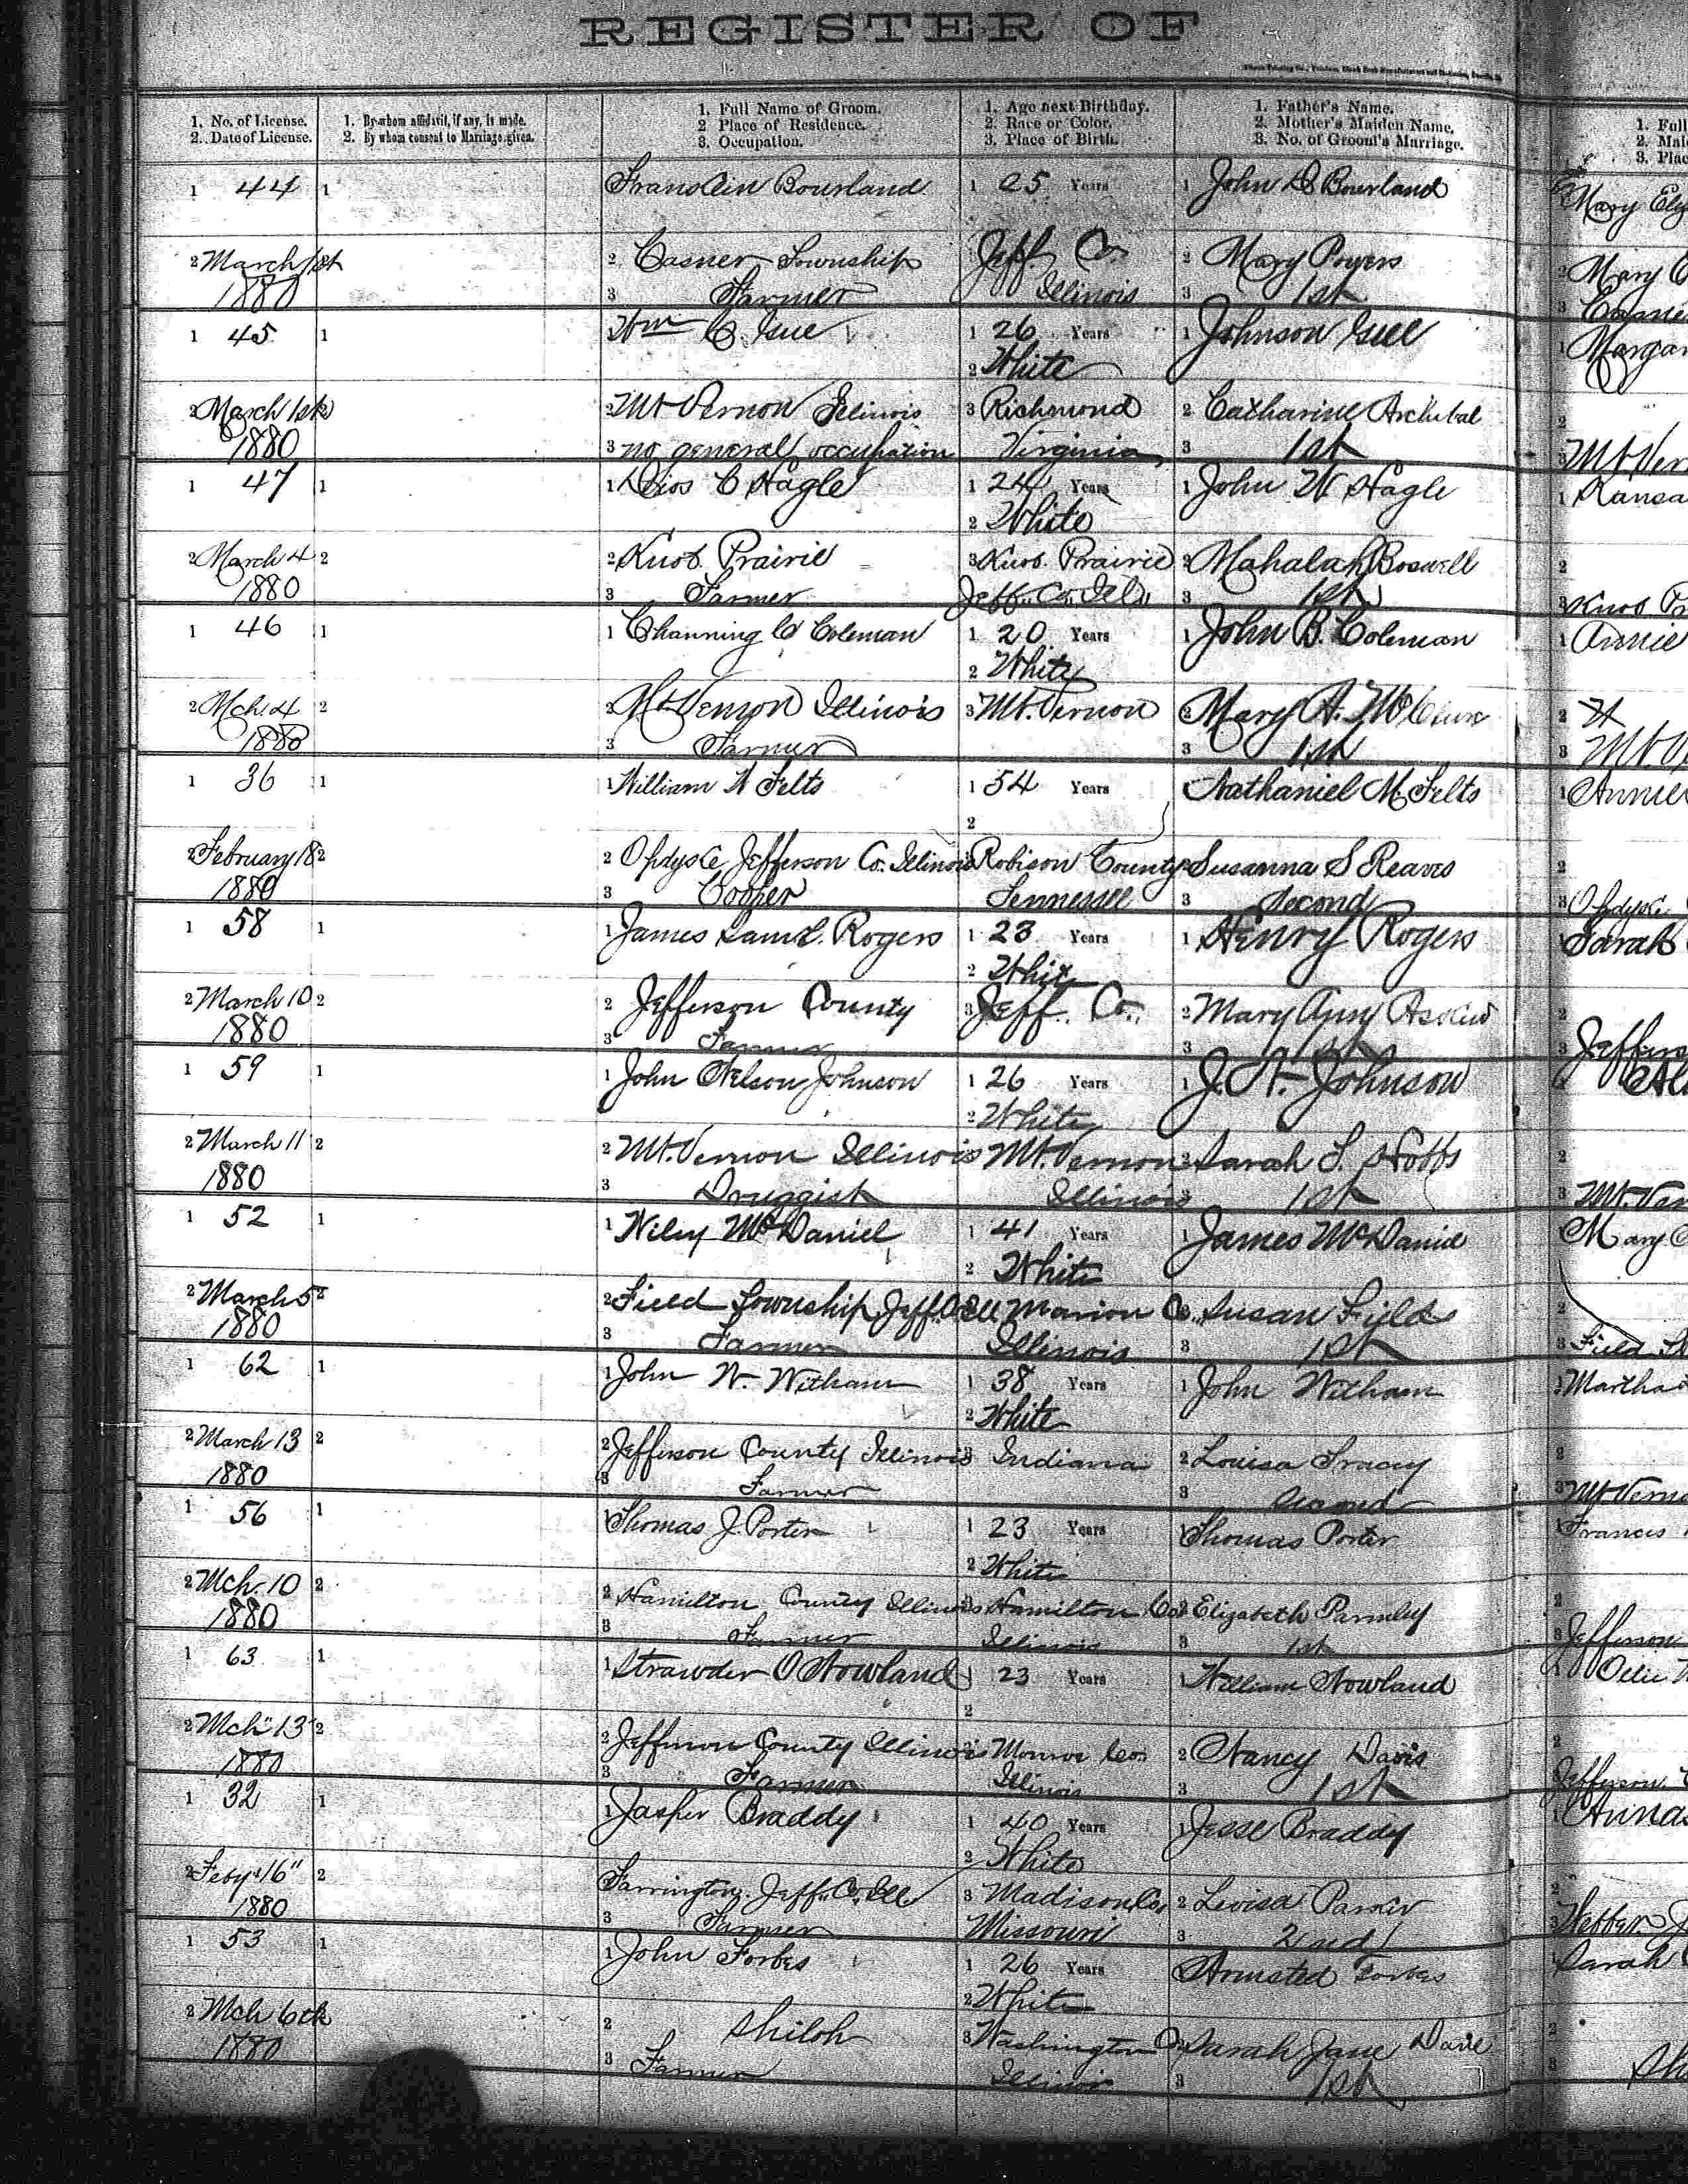 REGISTER OF
1. No. of License.
2. Date of License.
1. By whom affidavit, if any, is made.
2. By whom consent to Marriage given.
1. Full Name of Groom.
2 Place of Residence.
3. Occupation.
1. Age next Birthday.
2. Race or Color.
3. Place of Birth.
1. Father's Name.
2. Mother's Maiden Name.
3. No. of Groom's Marriage.
1. Full
2. Maid
3. Plac
1 44 1 Franklin Bourland 1 25 Years 1 John D Bourland Mary Eliz
2 March 1st 2 Casner Township Jeff Co 2 Mary 2 Mary
1880 3 Farmer Illinois 3 1st 3
1 45 1 Wm C. Gue 1 26 Years 1 Johnson Gue 1 Margar
2 White
2 March 1st 2 2 Mt Vernon Illinois 3 Richmond 2 Catharine Archibal 2
1880 3 no general occupation Virginia 3 1st 3 Mt Ver
1 47 1 1 C Hagle 1 24 Years 1 John W Hagle 1 Kansa
2 White
2 March 4 2 2 Knob Prairie 3 Knob Prairie 2 Mahalah Boswell 2
1880 3 Farmer Jeff. Co. Ill 3 1st 3 Knob Pr
1 46 1 1 Channing C Coleman 1 20 Years 1 John B. Coleman 1 Annie
2 White
2 Mch. 4 2 2 Mt Vernon Illinois 3 Mt. Vernon 2 Mary A. 2
1880 3 Farmer 3 1st 3 Mt. V
1 36 1 1 William N Felts 1 54 Years Nathaniel M. Felts 1 Annie
2
2 February 18 2 2 Opdyke Jefferson Co. Illinois Robison County Susanna S Reaves 2
1880 3 Cooper Tennessee 3 Second 3 Opdyke
1 58 1 1 James Saml. Rogers 1 23 Years 1 Henry Rogers 1 Sarah
2 White
2 March 10 2 2 Jefferson County 3 Jeff. Co. 2 Mary Ann 2
1880 3 Farmer 3 1st 3 Jeffers
1 59 1 1 John Nelson Johnson 1 26 Years 1 J. N. Johnson
2 White
2 March 11 2 2 Mt. Vernon Illinois Mt. Vernon 2 Sarah T. Hobbs 2
1880 3 Druggist Illinois 3 1st 3 Mt. Ver
1 52 1 1 Wiley McDaniel 1 41 Years 1 James McDaniel Mary
2 White
2 March 5 2 2 Field Township Jeff. Co. Ill Marion Co. Susan Fields 2
1880 3 Farmer Illinois 3 1st 3 Field
1 62 1 1 John W. Witham 1 38 Years 1 John Witham 1 Martha
2 White
2 March 13 2 2 Jefferson County Illinois Indiana 2 Louisa Tracey 2
1880 3 Farmer 3 second 3 Mt Verno
1 56 1 1 Thomas J. Porter 1 23 Years 1 Thomas Porter 1 Frances
2 White
2 Mch. 10 2 2 Hamilton County Illinois Hamilton Co. 2 Elizabeth Parmley 2
1880 3 Farmer Illinois 3 1st 3 Jefferson
1 63 1 1 Strawder O Nowland 1 23 Years 1 William Nowland 1 Ollie
2
2 Mch 13 2 2 Jefferson County Illinois Monroe Co. 2 Nancy Davis 2
1880 3 Farmer Illinois 3 1st Jefferson
1 32 1 1 Jasper Braddy 1 40 Years 1 Jesse Braddy Anna
2 White
2 Feby. 16" 2 Farrington. Jeff. Co. Ill 3 Madison Co, 2 Parker 2
1880 3 Farmer Missouri 3 2nd 3
1 53 1 1 John Forbes 1 26 Years Armsted Forbes 1 Sarah
2 White
2 Mch 6th 2 Shiloh 3 Washington Co. Sarah Jane 2
1880 3 Farmer Illinois 3 1st 3 Sh